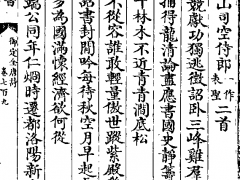 山司空侍郎二首作表聖
競獻功獨逃徵詔臥三峰雞群
捕得龍清論盡應書國史靜籌
千林木不近青青澗底松
不從容誰敢輕量傲世蹤紫殿
詔書封閒吟每待秋空月早起
多為國滿懷經濟欲何從
端公同年仁烱時遷都洛陽新
御定全唐詩
卷七百九